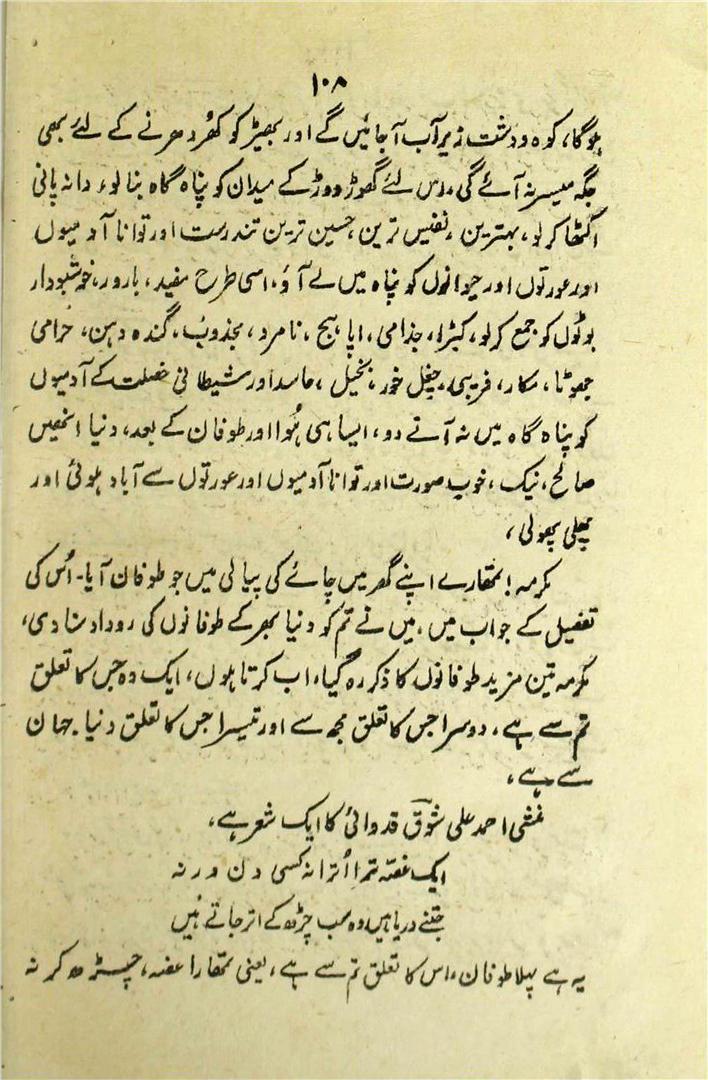 ۱۰۸
ہوگا، کوہ و دشت زیر آب آ جائیں گے اور بھیڑ کو کھُر دھرنے کے لئے بھی
جگہ میسر نہ آئے گی، اس لئے گھوڑ دوڑ کے میدان کو پناہ گاہ بنا لو، دانہ پانی
اکٹھا کر لو، بہترین، نفیس ترین حسین ترین تندرست اور توانا آدمیوں
اور عورتوں اور حیوانوں کو پناہ میں لے آؤ، اسی طرح مفید، بارور، خوشبودار
بوٹوں کو جمع کر لو، کبڑا، جذامی، اپاہج، نامرد، مجذوب، گندہ دہن، حرامی
جھوٹا، مکار، فریبی، چغل خور، بخیل، حاسد اور شیطانی خصلت کے آدمیوں
کو پناہ گاہ میں نہ آنے دو، ایسا ہی ہُوا اور طوفان کے بعد، دنیا انھیں
صالح، نیک، خوب صورت اور توانا آدمیوں اور عورتوں سے آباد ہوئی اور
پھلی پھولی،
مکرمہ! تمھارے اپنے گھر میں چائے کی پیالی میں جو طوفان آیا۔ اُس کی
تفصیل کے جواب میں، میں نے تم کو دنیا بھر کے طوفانوں کی روداد سنا دی،
مکرمہ تین مزید طوفانوں کا ذکر رہ گیا، اب کرتا ہوں، ایک وہ جس کا تعلق
تم سے ہے، دوسرا جس کا تعلق مجھ سے اور تیسرا جس کا تعلق دنیا جہان
سے ہے،
منشی احمد علی شوقؔ قدوائی کا ایک شعر ہے،
ایک غصہ ترا اُترا نہ کسی دن ورنہ
جتنے دریا ہیں وہ سب چڑھ کے اتر جاتے ہیں
یہ ہے پہلا طوفان، اس کا تعلق تم سے ہے، یعنی تمھارا غصہ، چڑھ کر نہ